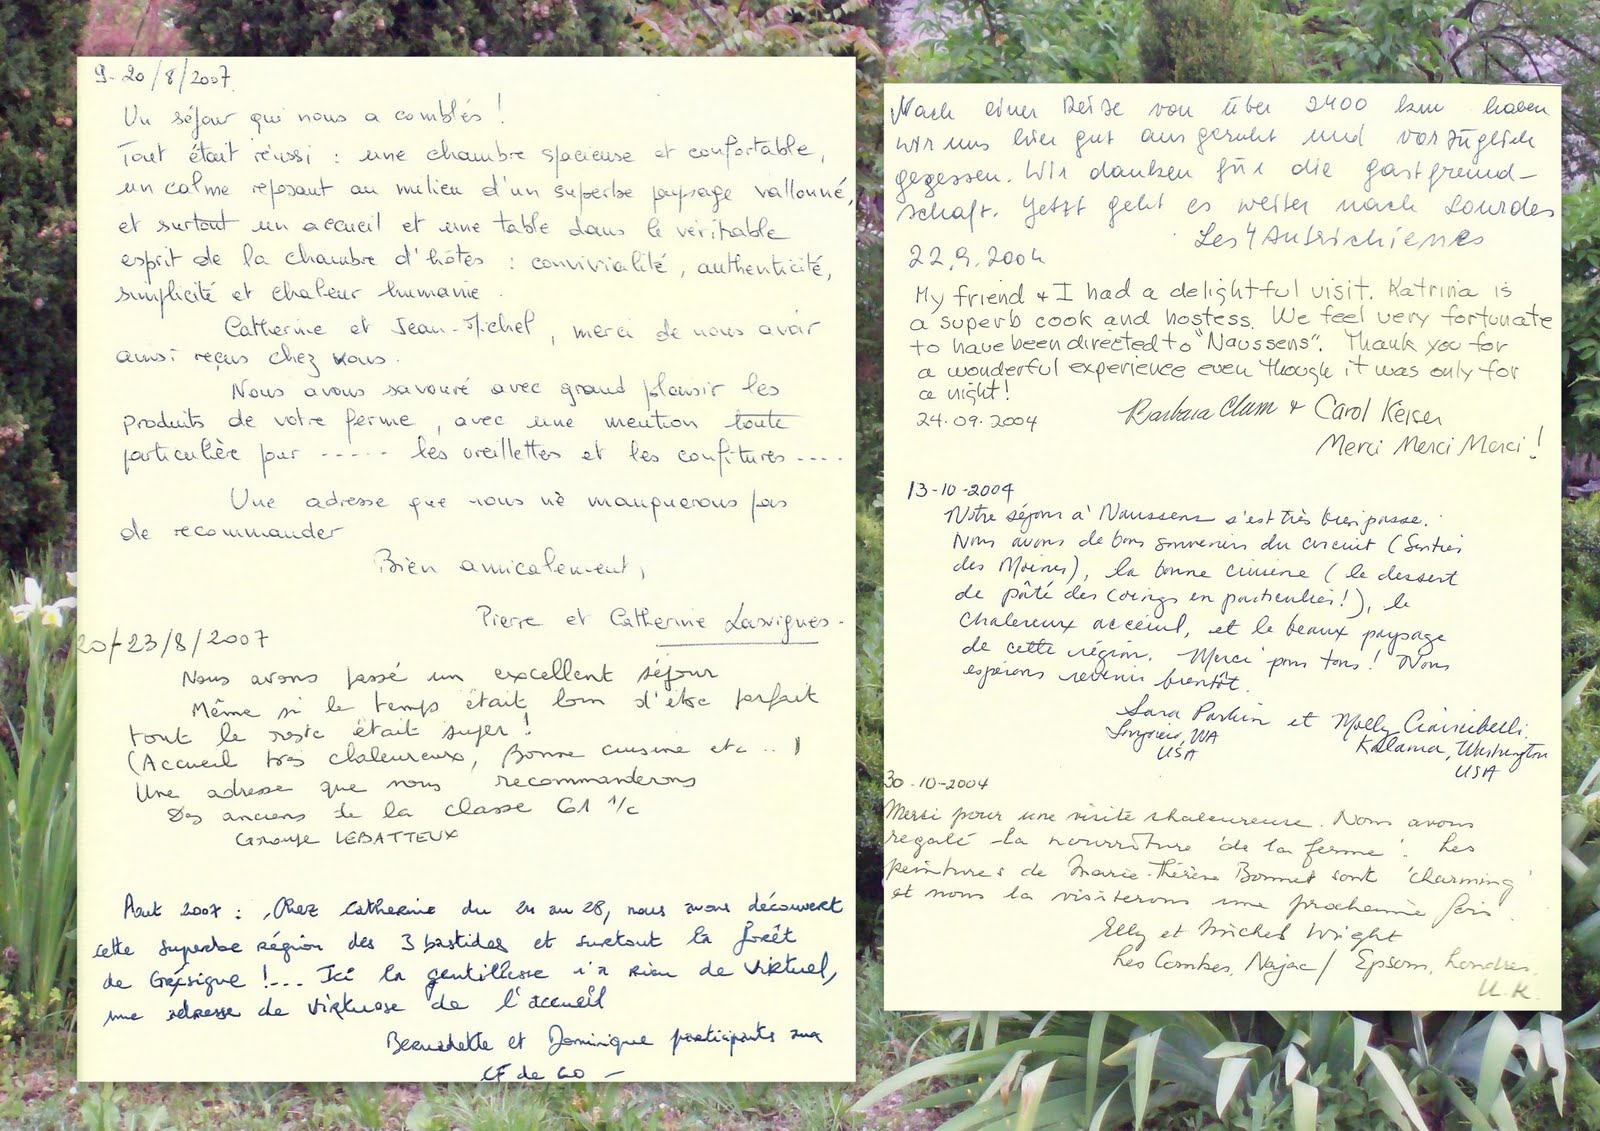 9-20/8/2007
Un séjour qui nous a comblés !
Tout était réussi : une chambre spacieuse et confortable,
un calme reposant au milieu d'un superbe paysage vallonné,
et surtout un accueil et une table dans le véritable
esprit de la chambre d'hôtes : convivialité, authenticité,
simplicité et chaleur humaine.
Catherine et Jean-Michel, merci de nous avoir
ainsi reçus chez vous.
Nous avons savouré avec grand plaisir les
produits de votre ferme, avec une mention toute
particulière pour ----- les oreillettes et les confitures ----
Une adresse que nous ne manquerons pas
de recommander
Bien amicalement,
Pierre et Catherine Lasvignes.
20-23/8/2007
Nous avons passé un excellent séjour
Même si le temps était loin d'être parfait
tout le reste était super !
(Accueil très chaleureux, Bonne cuisine etc...)
Une adresse que nous recommanderons
Des anciens de la classe 61 1/c
Groupe LEBATTEUX
Aout 2007 : Chez Catherine du 24 au 28, nous avons découvert
cette superbe région des 3 bastides et surtout la forêt
de Grésigne !... Ici la gentillesse n'a rien de virtuel,
une adresse de virtuose de l'accueil
Bernadette et Dominique participants aux
CF de GO -
Nach einer Reise von über 2400 km haben
wir uns hier gut ausgeruht und vorzüglich
gegessen. Wir danken für die Gastfreund-
schaft. Jetzt geht es weiter nach Lourdes
Les 4 Autrichiennes
22.9.2004
My friend & I had a delightful visit. Katrina is
a superb cook and hostess. We feel very fortunate
to have been directed to "Naussens". Thank you for
a wonderful experience even though it was only for
a night!
24.09.2004 Barbara Clum & Carol Keiser
Merci Merci Merci!
13-10-2004
Notre séjour à Naussens s'est très bien passe.
Nous avons de bons souvenirs du circuit (Sentier
des Moines), la bonne cuisine (le dessert
de pâté des coings en particulier!), le
chaleureux acceuil, et le beaux paysage
de cette région. Merci pour tous! Nous
espérons revenir bientôt.
Sara Parkin et Molly
WA Kalama, Washington
USA USA
30-10-2004
Merci pour une visite chaleureuse. Nous avons
regalé la nourriture 'de la ferme'. Les
peintures de Marie-Thérèse Bonnet sont 'charming'
et nous la visiterons une prochaine fois.
Elly et Michel Wright
Les Combes, Najac / Epsom, Londres.
U.K.